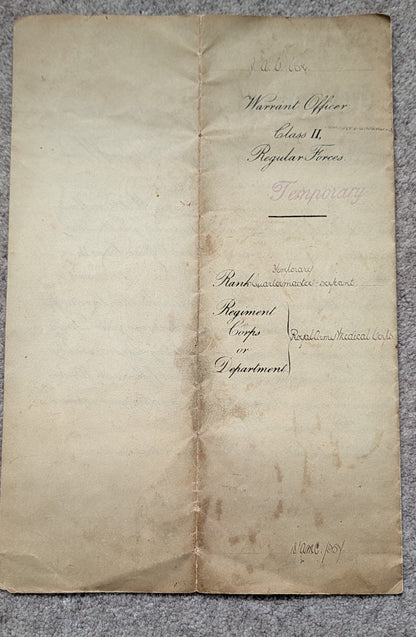 Warrant Officer
Class II.
Regular Forces.
Temporary
Honorary
Rank Quartermaster-Serjeant
Regiment
Corps
or
Department
Royal Army Medical Corps